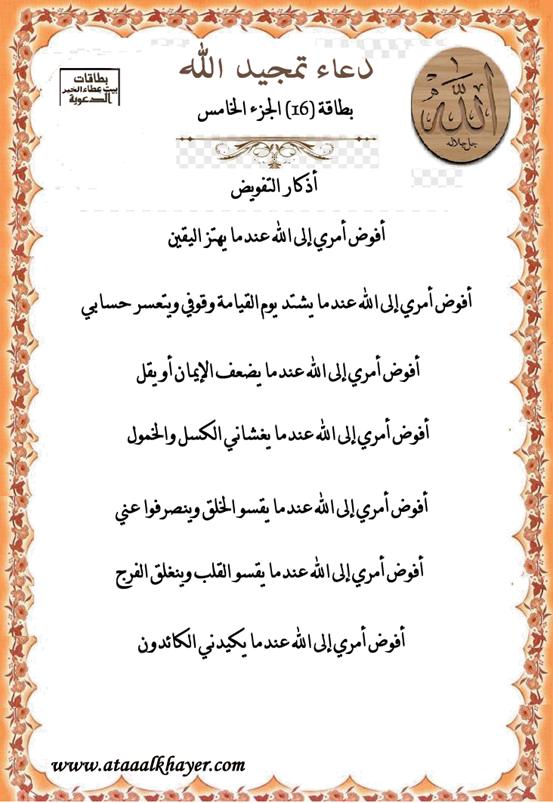 دعاء تمجيد الله
بطاقات
بيت عطاء الخير
الدعوية
الله
جل جلاله
بطاقة (16) الجزء الخامس
أذكار التفويض
أفوض أمري إلى الله عندما يهتز اليقين
أفوض أمري إلى الله عندما يشتد يوم القيامة وقوفي ويتعسر حسابي
أفوض أمري إلى الله عندما يضعف الإيمان أو يقل
أفوض أمري إلى الله عندما يغشاني الكسل والخمول
أفوض أمري إلى الله عندما يقسو الخلق وينصرفوا عني
أفوض أمري إلى الله عندما يقسو القلب وينغلق الفرج
أفوض أمري إلى الله عندما يكيدني الكائدون
www.ataaalkhayer.com